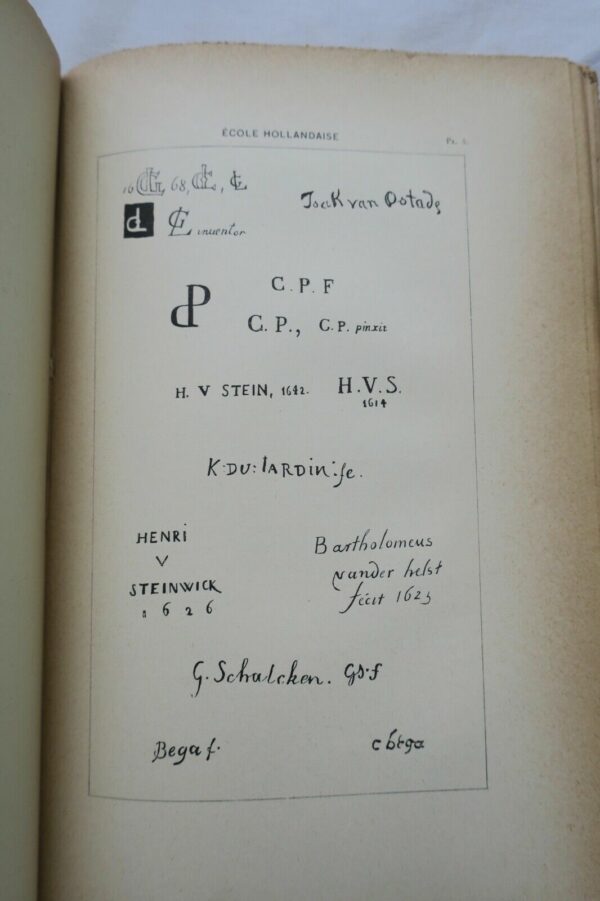 ÉCOLE HOLLANDAISE
PL. 5.
16 G, 68,
inventor
Isack van Ostade
C. P. F
C. P., C. P. pinxit
H. V STEIN, 1642. H. V. S.
1614
K·DU: IARDIN: fe.
HENRI
V
STEINWICK
1626
Bartholomeus
vander helst
fecit 1625
G. Schalcken. GS·f
Bega f.
c bega